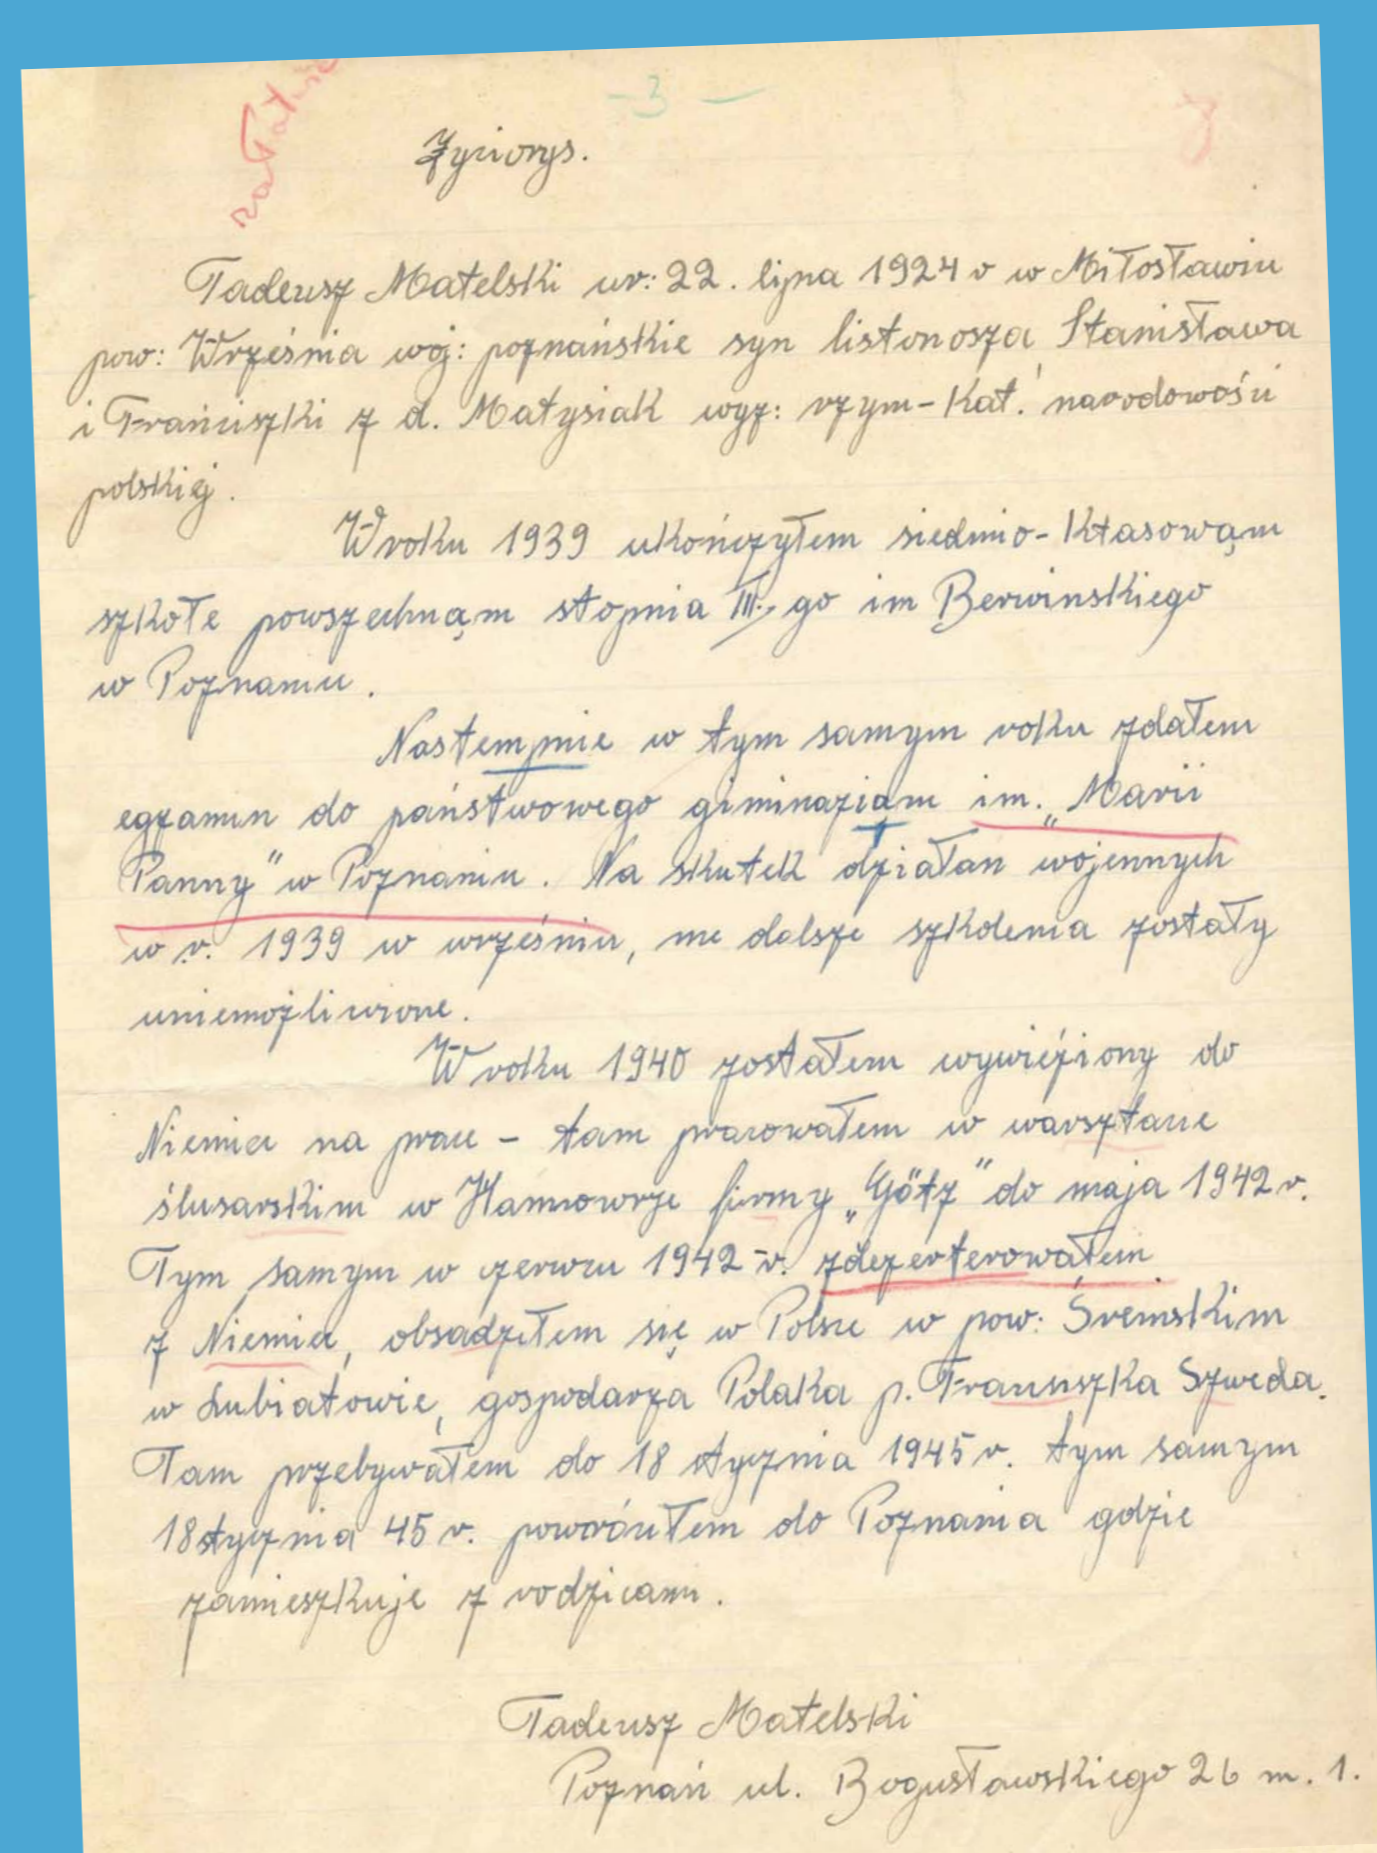 - 3 -
Życiorys.
Tadeusz Matelski ur: 22. lipca 1924 r w Miłosławiu
pow: Września woj: poznańskie syn listonosza Stanisława
i Franciszki z d. Matysiak wyz: rzym-kat. narodowości
polskiej.
W roku 1939 ukończyłem siedmio-klasowąm
szkołe powszechnąm stopnia III-go im Berwinskiego
w Poznaniu.
Nastempnie w tym samym roku zdałem
egzamin do państwowego giminaziam im. „Marii
Panny" w Poznaniu. Na skutek działan wojennych
w r. 1939 w wrześniu, me dalsze szkolenia zostały
uniemożliwione.
W roku 1940 zostałem wywieźiony do
Niemiec na prace - tam pracowałem w warsztacie
ślusarskim w Hannowrze firmy „Götz" do maja 1942 r.
Tym samym w czerwcu 1942 r. zdezerterowałem
z Niemiec, obsadziłem się w Polsce w pow: Śremskim
w Lubiatowie, gospodarza Polaka p. Franciszka Szweda.
Tam przebywałem do 18 stycznia 1945 r. tym samym
18 stycznia 45 r. powróciłem do Poznania gdzie
zamieszkuje z rodzicami.
Tadeusz Matelski
Poznań ul. Bogusławskiego 26 m. 1.